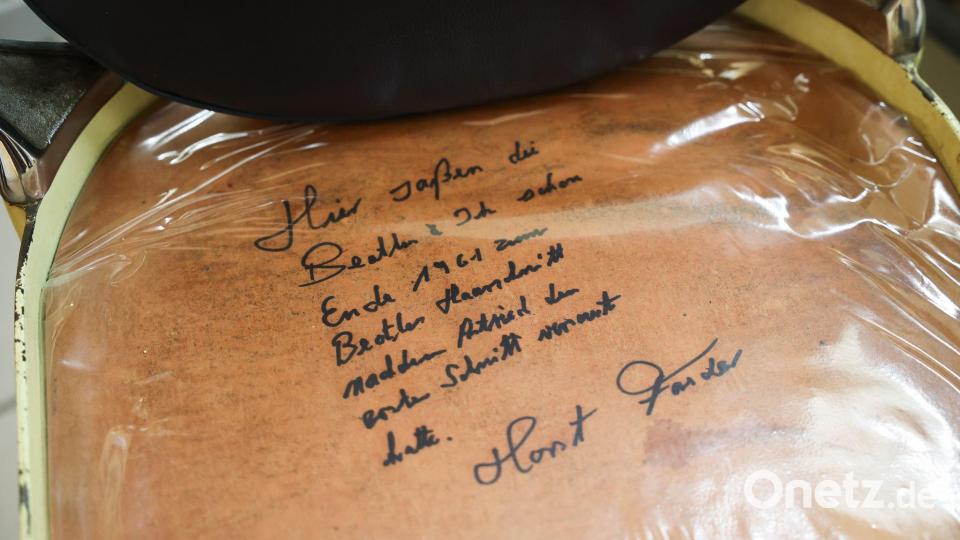 Hier saßen die
Beatles & Ich schon
Ende 1961 zum
Beatles Haarschnitt
nachdem Astrid den
ersten Schnitt
hatte.
Horst Fascher
Onetz.de